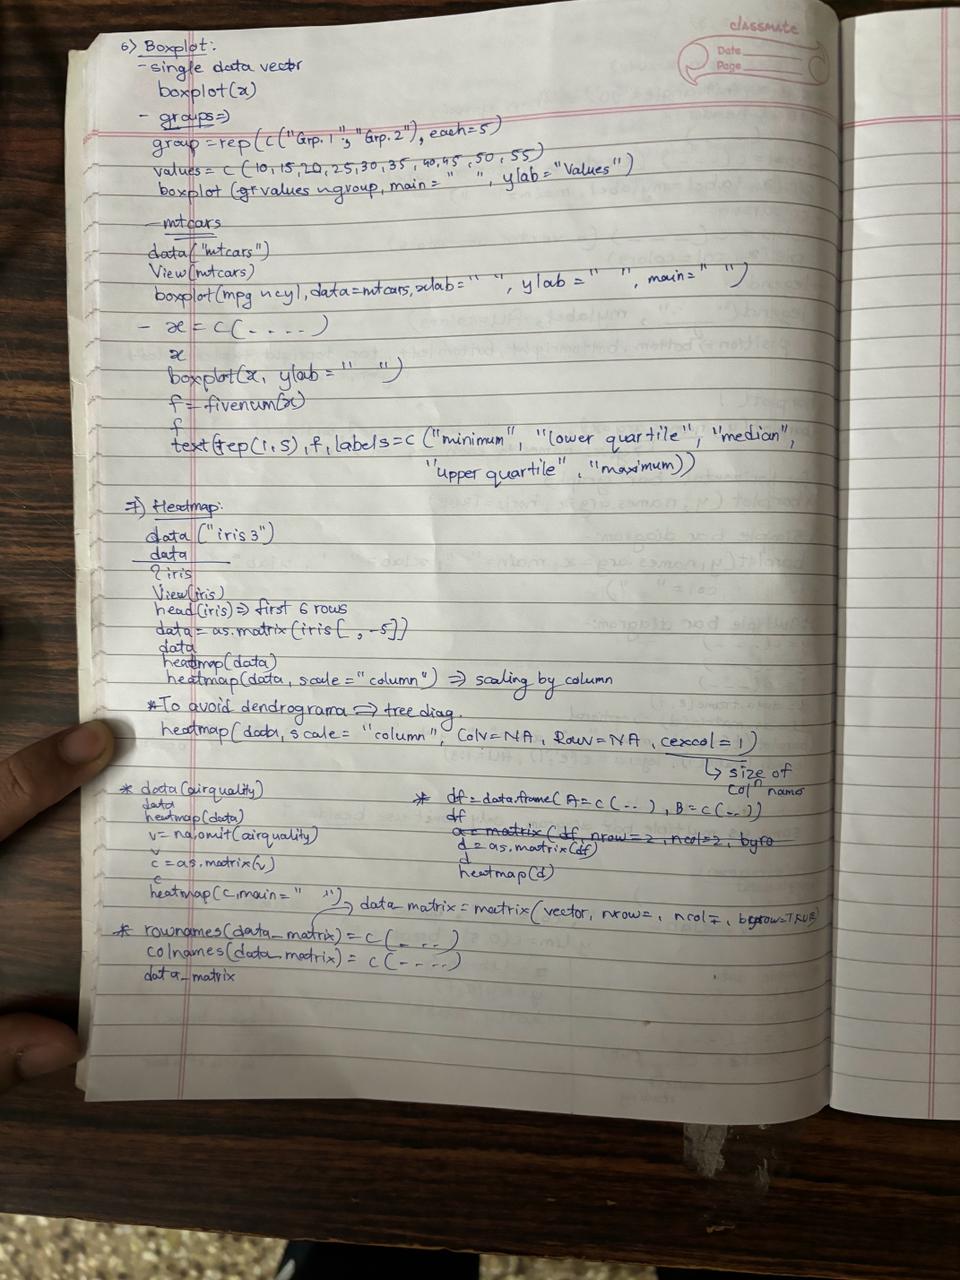 classmate
Date
Page
6) Boxplot:
- single data vector
boxplot(x)
- groups=>
group = rep(c("Grp. 1", "Grp. 2"), each=5)
values = c(10,15,20,25,30,35,40,45,50,55)
boxplot (values ~ group, main = " ", ylab = "Values")
- mtcars
data("mtcars")
View(mtcars)
boxplot(mpg ~ cyl, data=mtcars, xlab=" ", ylab = " ", main=" ")
- x = c(- - - -)
x
boxplot(x, ylab = " ")
f = fivenum(x)
f
text(rep(1,5), f, labels=c("minimum", "lower quartile", "median",
"upper quartile", "maximum))
7) Heatmap:
data("iris3")
data
?iris
View(iris)
head(iris) => first 6 rows
data = as.matrix(iris[ , -5])
data
heatmap(data)
heatmap(data, scale="column") => scaling by column
*To avoid dendrograma => tree diag.
heatmap(data, scale= "column", Colv=NA, Rowv=NA, cexcol=1)
↳ size of
colⁿ names
* data(airquality)
data
heatmap(data)
v = na.omit(airquality)
v
c = as.matrix(v)
c
heatmap(c, main=" ")
* df = data.frame(A=c(--), B=c(--))
df
a = matrix(df, nrow=2, ncol=2, byro
d = as.matrix(df)
d
heatmap(d)
→ data_matrix = matrix(vector, nrow=, ncol=, byrow=TRUE)
* rownames(data_matrix) = c(- - - -)
colnames(data_matrix) = c(- - - -)
data_matrix